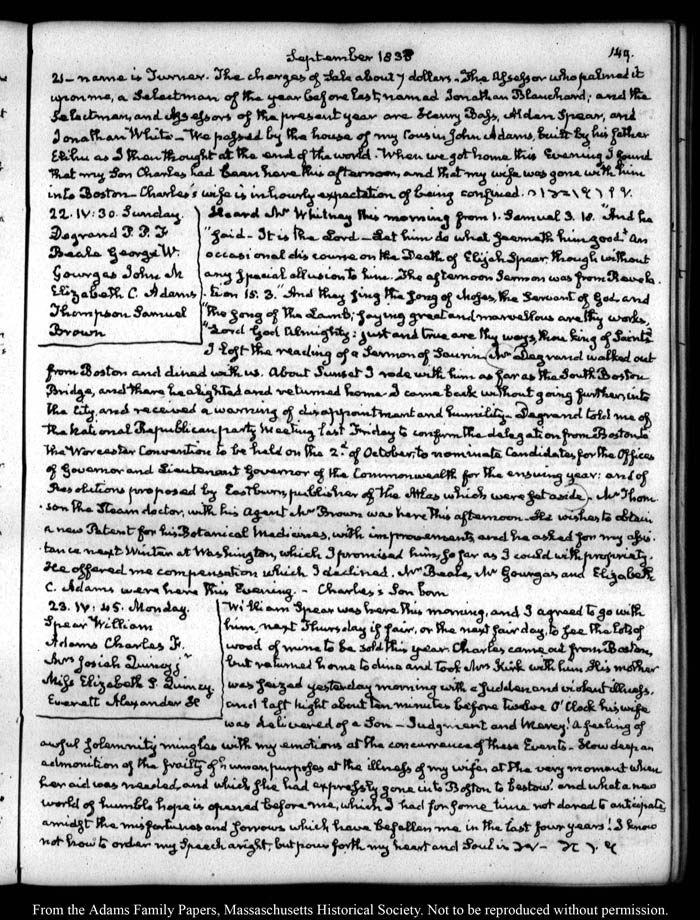 September 1833
149.
21 – name is Turner. The charges of Sale about 7 dollars – The Assessor who palmed it
upon me, a Selectman of the year before last, named Jonathan Blanchard; and the
Selectmen, and Assessors of the present year are Henry Bass, Alden Spear, and
Jonathan White – We passed by the house of my Cousin John Adams, built by his father
Elihu as I then thought at the end of the world. When we got home this Evening I found
that my Son Charles had been here this afternoon, and that my wife was gone with him
into Boston – Charles's wife is in hourly expectation of being confined.
22. IV:30. Sunday.
Degrand P. P. F
Beale George W.
Gourgas John M
Elizabeth C. Adams
Thompson Samuel
Brown
Heard Mr Whitney this morning from 1. Samuel 3. 18. "And he
"said – It is the Lord – Let him do what seemeth him good." An
occasional discourse on the Death of Elijah Spear, though without
any special allusion to him. The afternoon Sermon was from Revela-
tion 15. 3. "And they sing the song of Moses the Servant of God, and
"the song of the Lamb, saying great and marvellous are thy works,
"Lord God Almighty; just and true are thy ways, thou king of Saints"
I left the reading of a Sermon of Saurin. Mr Degrand walked out
from Boston and dined with us. About Sunset I rode with him as far as the South Boston
Bridge, and there he alighted and returned home. I came back without going further into
the City, and received a warning of disappointment and humility – Degrand told me of
the National Republican party Meeting last Friday to confirm the delegation from Boston to
the Worcester Convention to be held on the 2d of October, to nominate Candidates for the Offices
of Governor and Lieutenant Governor of the Commonwealth for the ensuing year: and of
Resolutions proposed by Eastburn, publisher of the Atlas which were set aside – Mr Thom-
son the Steam doctor, with his Agent Mr Brown was here this afternoon – He wishes to obtain
a new Patent for his Botanical Medicines, with improvements and he asked for my assis-
tance next Winter at Washington, which I promised him, so far as I could with propriety.
He offered me compensation which I declined. Mr Beale, Mr Gourgas and Elizabeth
C. Adams were here this Evening. – Charles's Son born
23. IV:45. Monday.
Spear William
Adams Charles F.
Mrs Josiah Quincy jr
Miss Elizabeth S. Quincy.
Everett Alexander H
William Spear was here this morning, and I agreed to go with
him, next Thursday if fair, or the next fair day, to see the lots of
wood of mine to be sold this year. Charles came out from Boston,
but returned home to dine and took Mrs Kirk with him. His mother
was seized yesterday morning with a sudden and violent illness.
and last night about ten minutes before twelve O'Clock his wife
was delivered of a Son – Judgment and Mercy! A feeling of
awful solemnity mingles with my emotions at the concurrence of these Events – How deep an
admonition of the frailty of human purposes at the illness of my wife, at the very moment when
her aid was needed, and which she had expressly gone into Boston to bestow! and what a new
world of humble hope is opened before me, which I had for some time not dared to anticipate,
amidst the misfortunes and sorrows which have befallen me in the last four years! I know
not how to order my Speech aright, but pour forth my heart and Soul
From the Adams Family Papers, Massachusetts Historical Society. Not to be reproduced without permission.